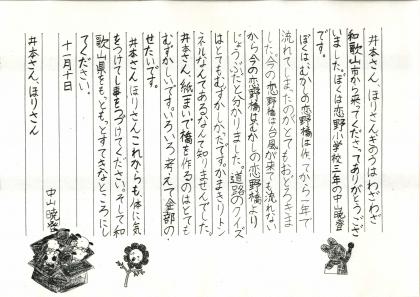 井本さん、ほりさんきのうはわざわざ
和歌山市から来てくださってありがとうござ
いました。ぼくは恋野小学校三年の中山暁登
です。
ぼくは、むかしの恋野橋は作ってから一年で
流れてしまったのがとてもおどろきま
した。今の恋野橋は台風が来ても流れない
から今の恋野橋はむかしの恋野橋より
じょうぶだと分かりました。道路のクイズ
はとてもむずかしかったです。かまきりトン
ネルなんてあるなんて知りませんでした。
井本さん、紙まい で橋を作るのはとても
むずかしいです。いろいろ考えて全部の
せたいです。
井本さん、ほりさんこれからも体に気
をつけてし事をつづけてください。そして和
歌山県をもっともっとすてきなところにし
てください。
十一月十日
中山暁登
井本さん、ほりさん